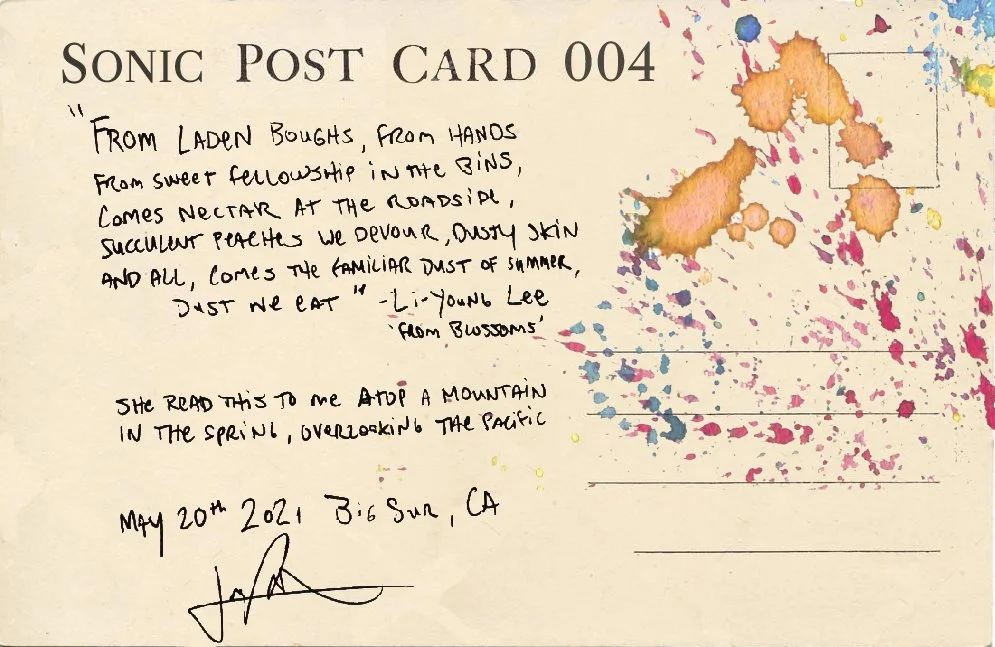 SONIC POST CARD 004
"FROM LADEN BOUGHS, FROM HANDS
FROM SWEET FELLOWSHIP IN THE BINS,
COMES NECTAR AT THE ROADSIDE,
SUCCULENT PEACHES WE DEVOUR, DUSTY SKIN
AND ALL, COMES THE FAMILIAR DUST OF SUMMER,
DUST WE EAT" -LI-YOUNG LEE
'FROM BLOSSOMS'
SHE READ THIS TO ME ATOP A MOUNTAIN
IN THE SPRING, OVERLOOKING THE PACIFIC
MAY 20th 2021 BIG SUR, CA